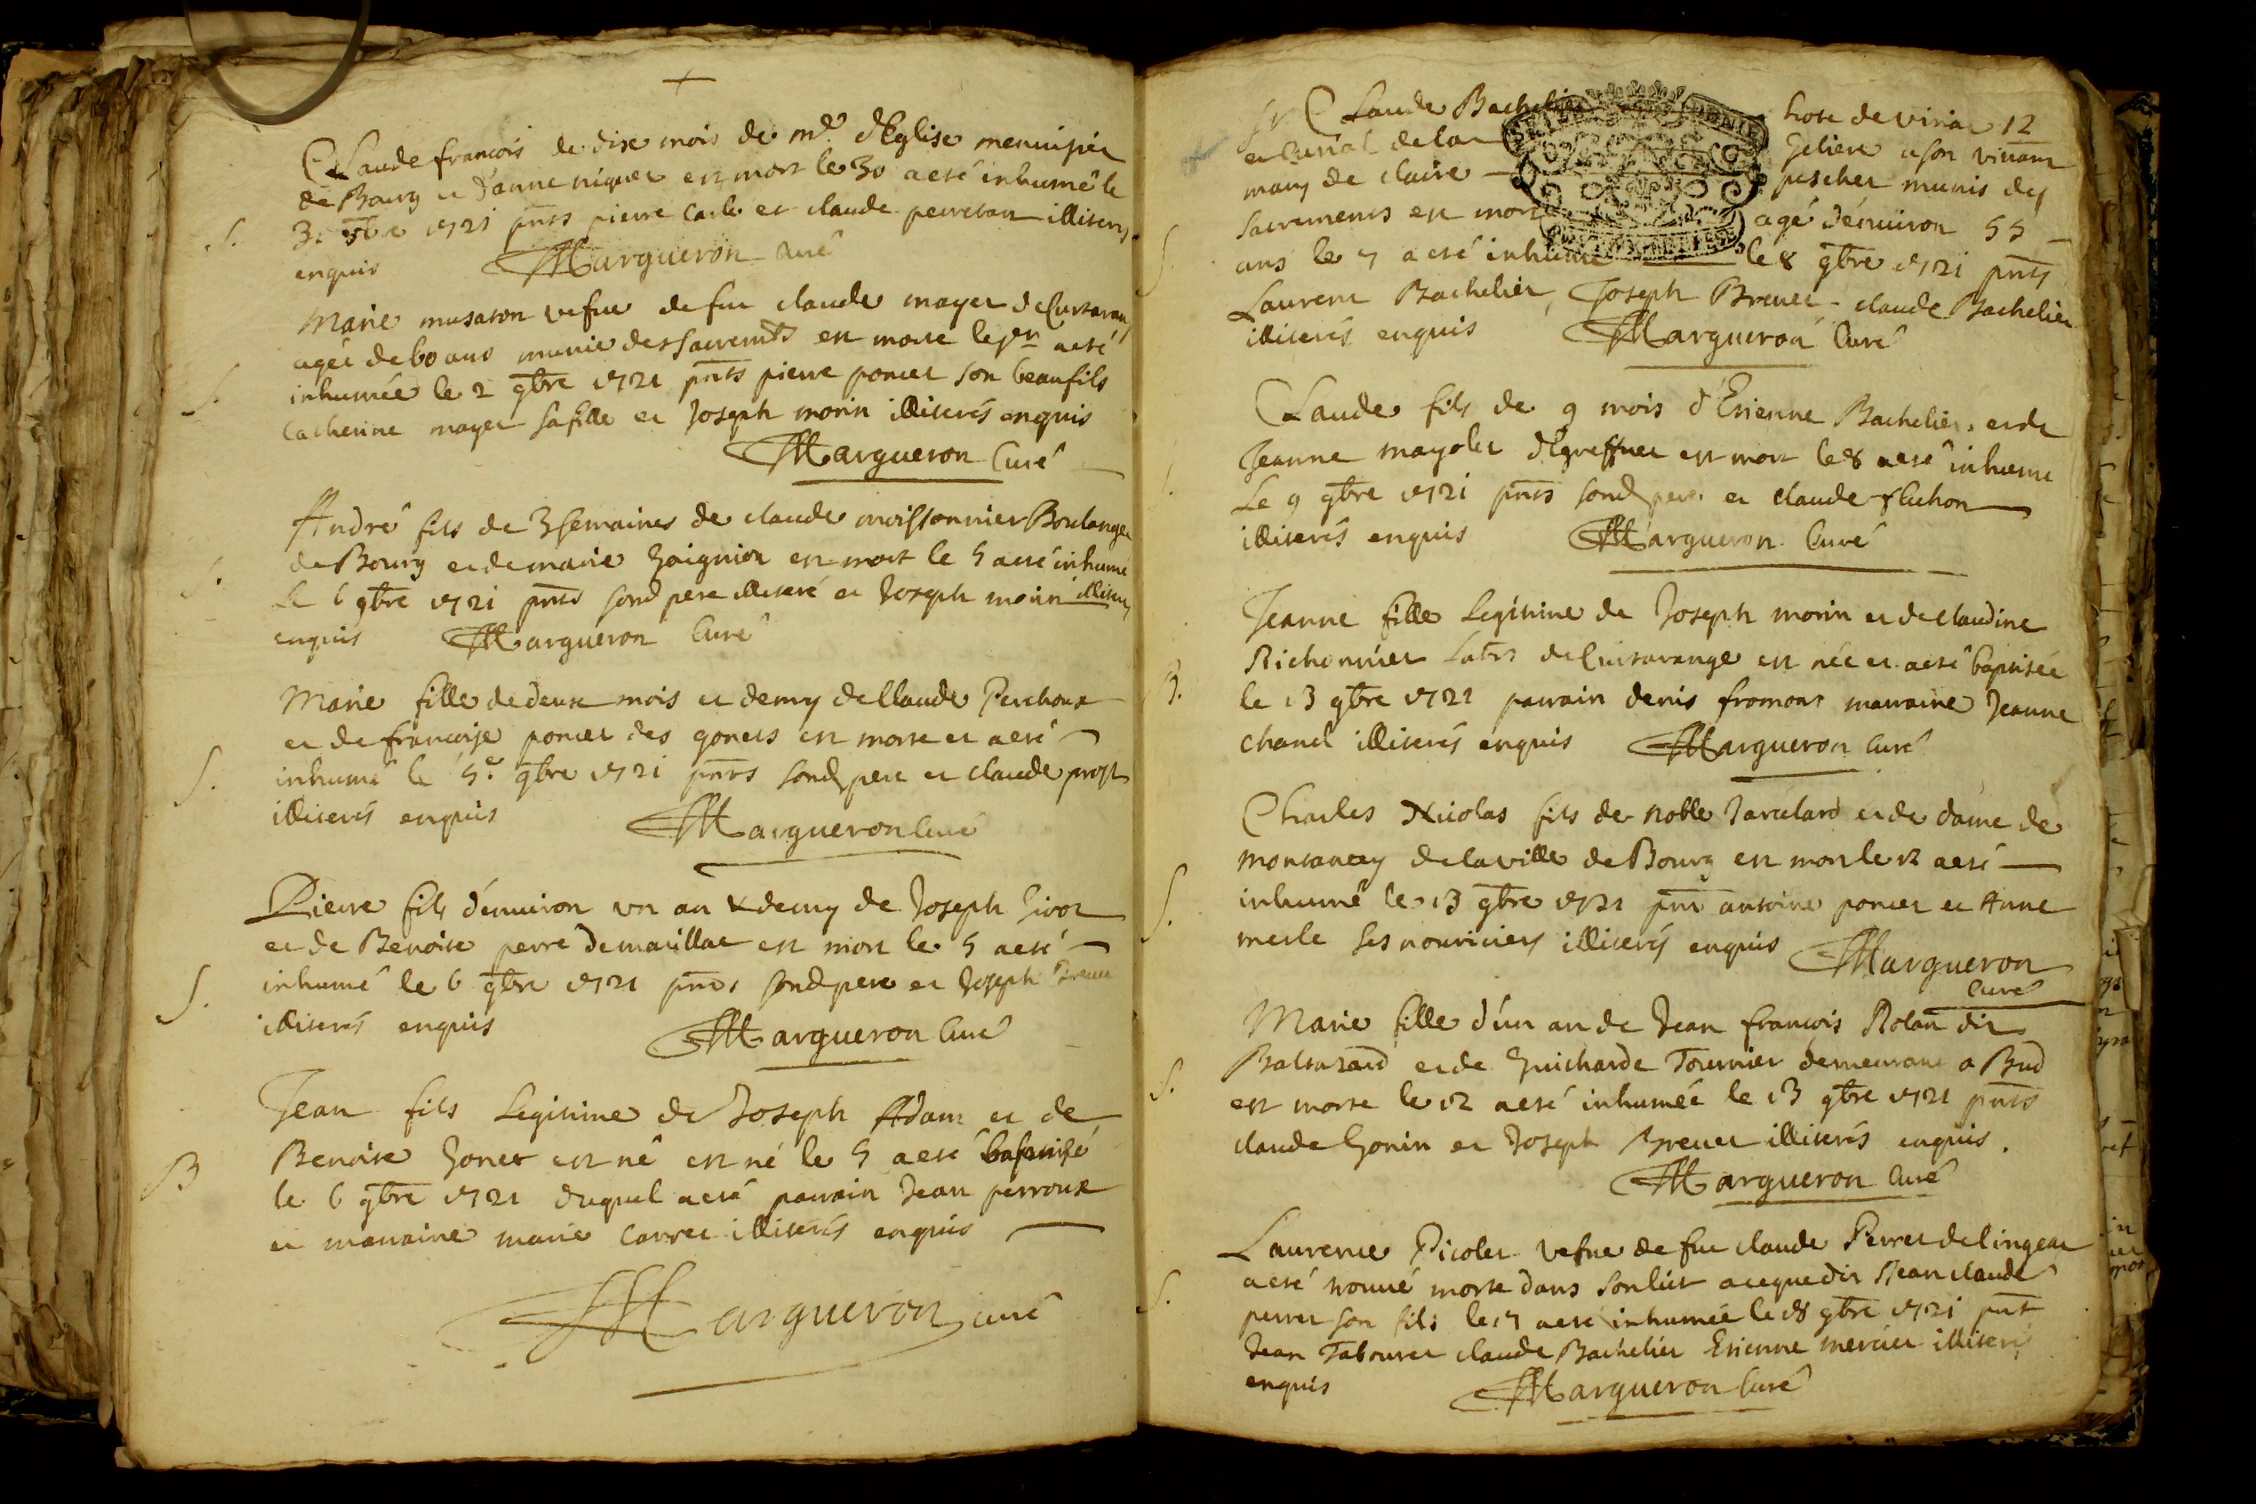 Claude francois de dix mois de md d'Eglise menuisier
de Bourg et d'anne niquet est mort le 30 a eté inhumé le
31 1721 pnts pierre et claude perretan illiterés
enquis Margueron curé
S.
Marie musaton vefve de feu claude mayet de Cursarans
agée de 60 ans munie des sacremts est morte le pr a eté
inhumée le 2 9bre 1721 pnts pierre poncet son beaufils
S.
Catherine mayet sa fille et Joseph morin illiterés enquis
Margueron Curé
André fils de 3 semaines de claude moissonnier Boulanger
de Bourg et de marie est mort le 5 a eté inhumé
S.
le 6 9bre 1721 pnts sond pere illiteré et Joseph morin illiteré
enquis Margueron Curé
Marie fille de deux mois et demy de Claude Perchoux
et de francoise poncet des gonets est morte et a eté
S.
inhumé le 5e 9bre 1721 pnts sond pere et claude prost
illiterés enquis Margueron Curé
Pierre fils d'environ un an & demy de Joseph
et de Benoite perret de marillat est mort le 5 a eté
S.
inhumé le 6 9bre 1721 pnts sond pere et Joseph Brevet
illiterés enquis Margueron Curé
Jean fils Legitime de Joseph Adam et de
Benoite gonet est né est né le 5 a eté baptisé
B
le 6 9bre 1721 duquel a eté parrain Jean perroux
et marraine marie carret illiterés enquis
Margueron curé
Sr Claude Bachelier hote de viria 12
et Curial de la Geliere a son vivant
mary de claire pescher munis des
sacrements est mort agé d'environ 55
S
ans le 7 a eté inhumé le 8 9bre 1721 pnts
Laurent Bachelier, Joseph Brevet, claude Bachelier
illiterés enquis Margueron Curé
Claude fils de 9 mois d'Etienne Bachelier et de
Jeanne mayolet d'Egreffnet est mort le 8 a eté inhumé
Le 9 9bre 1721 pnts sond pere et claude fluchon
illiterés enquis Margueron Curé
Jeanne fille Legitime de Joseph morin et de claudine
Richonnier labrs de Cuisarange est née et a eté baptisée
B.
le 13 9bre 1721 parrain denis fromont marraine Jeanne
chanel illiterés enquis Margueron Curé
Charles Nicolas fils de noble Jarcelard et de dame de
montancey de la ville de Bourg est mort le 12 a eté
S.
inhumé le 13 9bre 1721 pnt antoine poncet et Anne
merle ses nouriciers illiterés enquis Margueron
Curé
Marie fille d'un an de Jean francois Rolan dit
Baltazard et de Guicharde Tournier demeurant a Bud
S.
est morte le 12 a eté inhumée le 13 9bre 1721 pnts
claude gonin et Joseph Brevet illiterés enquis.
Margueron Curé
Laurence Picolet vefve de feu claude Perret de lingeat
a eté trouvé morte dans son lict a ce que dit Jean claude
S.
perret son fils le 17 a eté inhumée le 18 9bre 1721 pnt
Jean Tabouret claude Bachelier Etienne mercier illiterés
enquis Margueron Curé